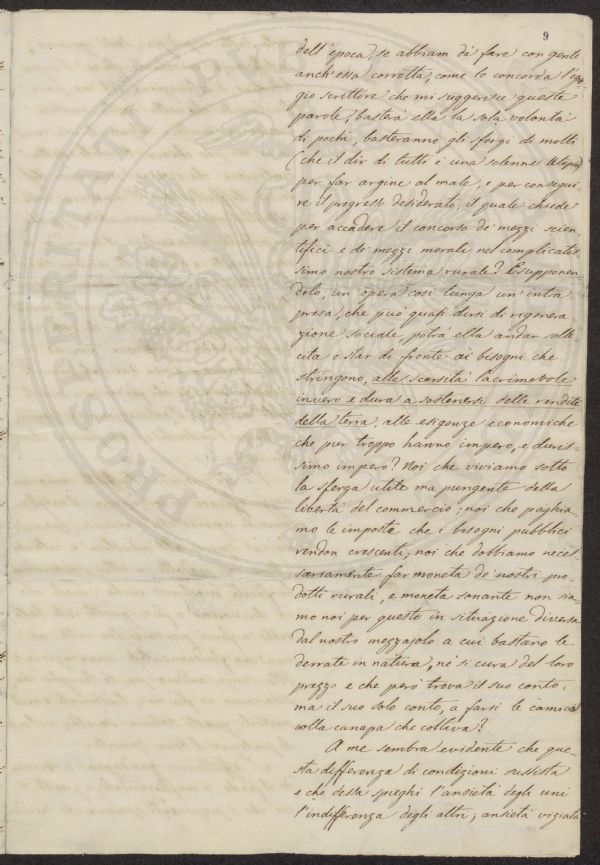 9
dell'epoca, se abbiam da fare con gente
anch'essa corrotta, come lo concorda l'egre-
gio scrittore che mi suggerisce queste
parole, basterà ella la sola volontà
di pochi, basteranno gli sforzi di molti
(che il dir di tutti è una solenne utopia)
per far argine al male, e per consegui
re il progresso desiderato, il quale chiede
per accadere il concorso de' mezzi scien
tifici e de' mezzi morali nel complicatis
simo nostro sistema rurale? E supponen
dolo, un'opera così lunga un'intra
presa, che può quasi dirsi di rigenera-
zione sociale, potrà ella andar solle
cita e star di fronte ai bisogni che
stringono, alla scarsità lacrimevole
invero e dura a sostenersi delle rendite
della terra, alle esigenze economiche
che pur troppo hanno impero, e duris-
simo impero? Noi che viviamo sotto
la sferza utile ma pungente della
libertà del commercio; noi che paghia-
mo le imposte che i bisogni pubblici
rendon crescenti, noi che dobbiamo neces
sariamente far moneta de' nostri pro
dotti rurali, e moneta sonante non sia-
mo noi per questo in situazione diversa
dal nostro mezzajolo a cui bastano le
derrate in natura, né si cura del loro
prezzo e che però trova il suo conto,
ma il suo solo conto, a farsi le camicie
colla canapa che coltiva?
A me sembra evidente che que-
sta differenza di condizioni sussista
e che dessa spieghi l'ansietà degli uni
l'indifferenza degli altri; ansietà viziata
PROSPERITATI PVBLICAE